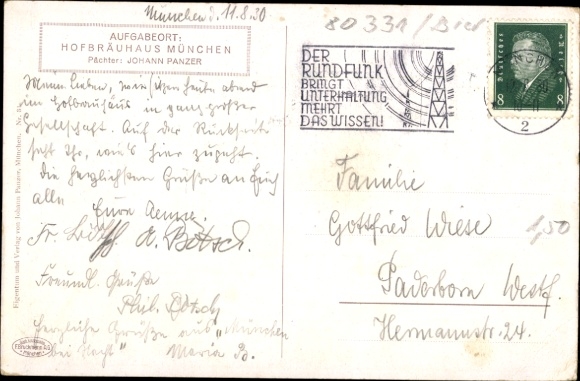 München d. 11.8.30
AUFGABEORT:
HOFBRÄUHAUS MÜNCHEN
Pächter: JOHANN PANZER
Meine Lieben, wir sitzen heute abend
im Hofbräuhaus in ganz großer
Gesellschaft. Auf der Rückseite
seht Ihr, wie's hier zugeht.
Die herzlichsten Grüße an Euch
alle
Eure
Fr.
Freundl. Grüße
Phil.
Herzliche Grüße aus "München
bei Nacht" Maria B.
Eigentum und Verlag von Johann Panzer, München, Nr.
80331/
DER
RUNDFUNK
BRINGT
UNTERHALTUNG
MEHRT
DAS WISSEN!
Deutsches Reich
8 8
2
Familie
Gottfried Wiese
1,50
Paderborn Westf.
Hermannstr. 24.